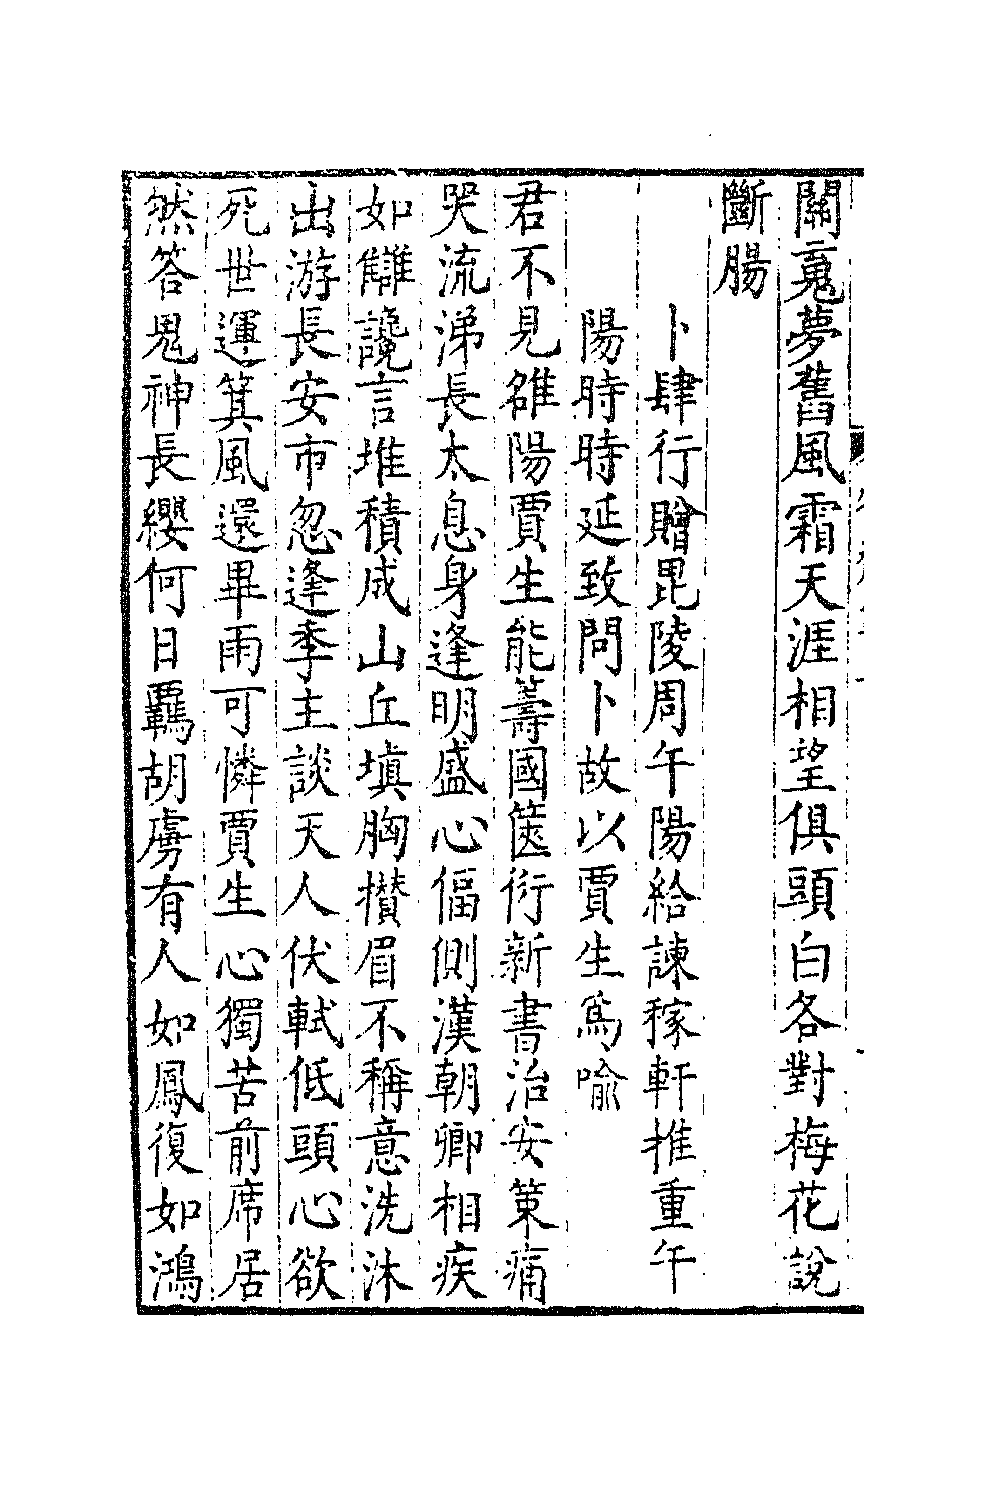 關䰟夢舊風霜天涯相望俱頭白各對梅花說
斷腸
卜肆行贈毘陵周午陽給諫稼軒推重午
陽時時延致問卜故以賈生爲喻
君不見雒陽賈生能籌國篋衍新書治安策痛
哭流涕長太息身逢明盛心偪側漢朝卿相疾
如讎讒言堆積成山丘塡胸攢眉不稱意洗沐
出游長安市忽逢季主談天人伏軾低頭心欲
死世運箕風還畢雨可憐賈生心獨苦前席居
然答鬼神長纓何日羈胡虜有人如鳳復如鴻